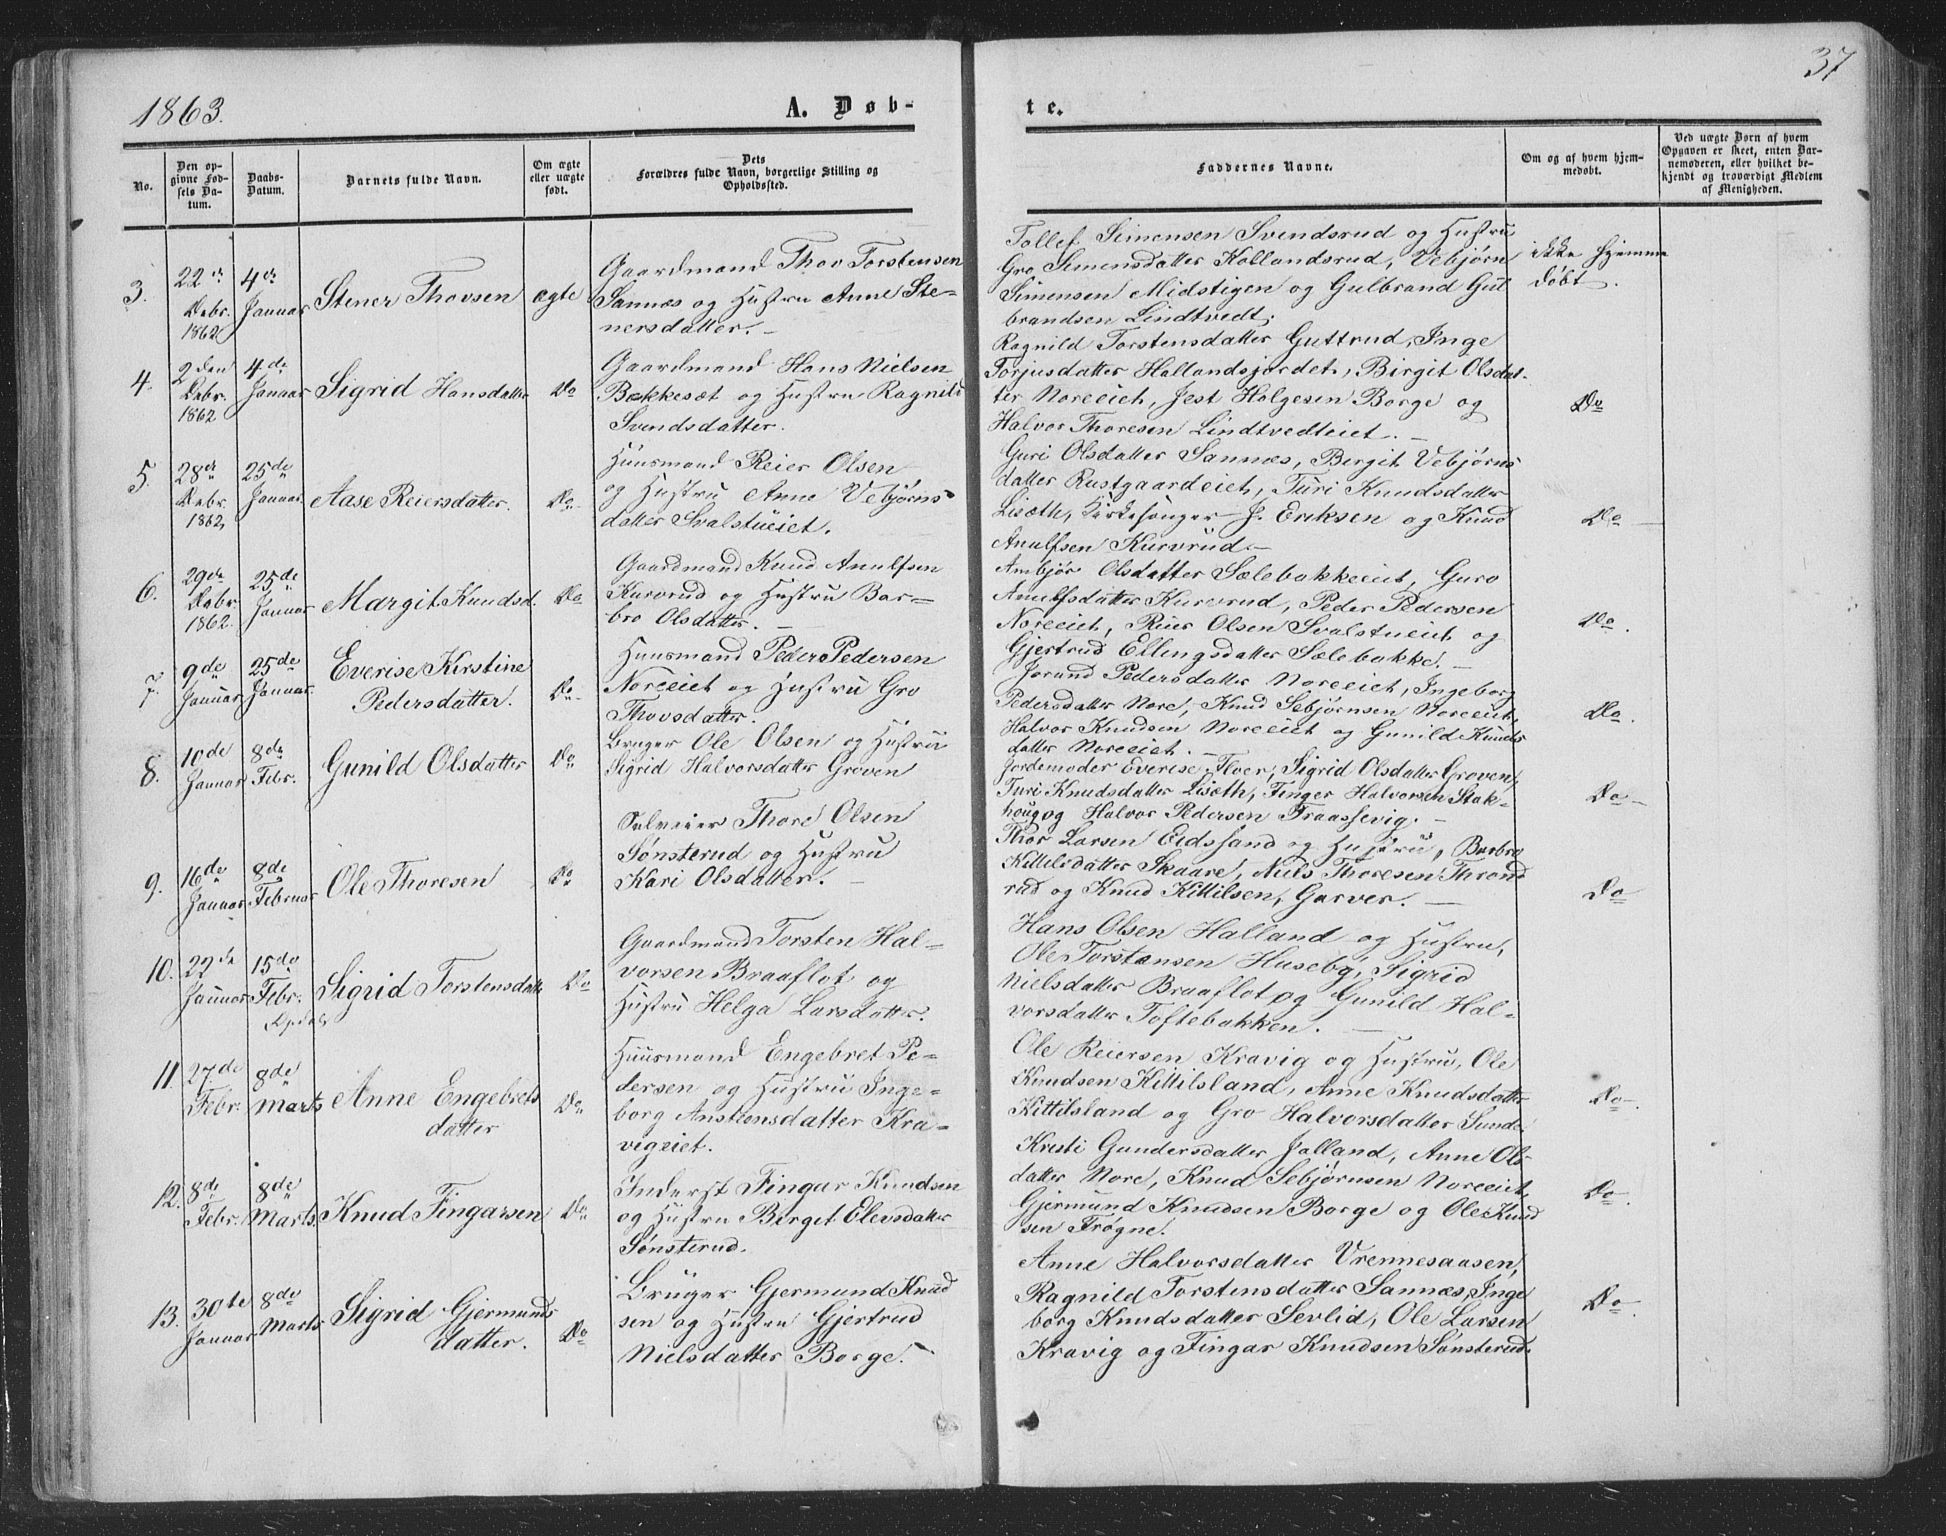 1863.
A. Døb-
te.
37
No.
Den op-
givne Fød-
sels Da-
tum.
Daabs-
Datum.
Barnets fulde Navn.
Om ægte
eller uægte
født.
Dets
Forældres fulde Navn, borgerlige Stilling og
Opholdssted.
Faddernes Navne.
Om og af hvem hjem-
medøbt.
Ved uægte Børn af hvem
Opgaven er skeet, enten Bar-
nemoderen, eller hvilket be-
kjendt og troværdigt Medlem
af Menigheden.
3.
22de
Debr.
1862
4de
Januar
Stener Thovsen
ægte
Gaardmand Thov Torstensen
Sannæs og Hustru Anne Ste-
nersdatter.
Tollef Simensen Svendsrud og Hustru
Gro Simensdatter Hollandsrud, Vebjørn
Simensen Midstigen og Gulbrand Gul
brandsen Lindtvedt.
ikke hjemme
døbt.
4.
2den
Debr.
1862
4de
Januar
Sigrid Hansdatter
Do
Gaardmand Hans Nielsen
Bakkesæt og Hustru Ragnild
Svendsdatter.
Ragnild Torstensdatter Guttrud, Inge
Torjusdatter Hallandsjordet, Birgit Olsdat-
ter Noreeiet, Jest Holgesen Borge og
Halvor Thoresen Lindtvedteiet.
Do
5.
28de
Debr.
1862,
25de
Januar
Aase Reiersdatter.
Do
Huusmand Reier Olsen
og Hustru Anne Vebjørns
datter Svalstueiet.
Guri Olsdatter Sannæs, Birgit Vebjørns
datter Rustgaardeiet, Turi Knudsdatter
Lisæth, Kirkesanger J. Eriksen og Knud
Anulfsen Kurvrud.
Do
6.
29de
Debr.
1862.
25de
Januar
Margit Knudsd.
Do
Gaardmand Knud Anulfsen
Kurvrud og Hustru Bar-
bro Olsdatter.
Ambjør Olsdatter Sælebakkeeiet, Guro
Anulfsdatter Kurvrud, Peder Pedersen
Noreeiet, Reier Olsen Svalstueiet og
Gjertrud Ellingsdatter Sælebakke.
Do.
7.
9de
Januar
25de
Januar.
Everise Kirstine
Pedersdatter.
Do
Huusmand Peder Pedersen
Noreeiet og Hustru Gro
Thovsdatter.
Jorand Pedersdatter Noreeiet, Ingeborg
Pedersdatter Nore, Knud Sebjørnsen Noreeiet,
Halvor Knudsen Noreeiet og Gunild Knuds
datter Noreeiet.
Do.
8.
10de
Januar
8de
Febr.
Gunild Olsdatter
Do
Bruger Ole Olsen og Hustru
Sigrid Halvorsdatter Groven
Jordemoder Everise Floer, Sigrid Olsdatter Groven,
Turi Knudsdatter Lisæth, Finger Halvorsen Stak-
houg og Halvor Pedersen Fraassevig.
Do
9.
16de
Januar
8de
Februar
Ole Thoresen
Do
Selveier Thore Olsen
Sønsterud og Hustru
Kari Olsdatter.
Thor Larsen Eidssand og Hustru, Barbro
Kittilsdatter Skaare, Niels Thoresen Thrond
rud og Knud Kittilsen, Garver.
Do
10.
22de
Januar
15de
Febr.
Opdal,
Sigrid Torstensdatter
Do
Gaardmand Torsten Hal-
vorsen Braaflot og
Hustru Helga Larsdatter.
Hans Olsen Halland og Hustru,
Ole Torstensen Huseby, Sigrid
Nielsdatter Braaflot og Gunild Hal-
vorsdatter Toftebakken.
11.
27de
Febr.
8de
Marts
Anne Engebrets
datter
Do
Huusmand Engebret Pe-
dersen og Hustru Inge-
borg Anstensdatter Kra-
vigeiet.
Ole Reiersen Kravig og Hustru, Ole
Knudsen Kittilsland, Anne Knudsdatter
Kittilsland og Gro Halvorsdatter Sunde.
Do.
12.
8de
Febr.
8de
Marts.
Knud Fingarsen
Do
Inderst Fingar Knudsen
og Hustru Birget Elevsdatter
Sønsterud.
Kristi Gundersdatter Jalland, Anne Ols
datter Nore, Knud Sebjørnsen Noreeiet,
Gjermund Knudsen Borge og Ole Knud
sen Frøgne.
Do.
13.
30te
Januar
8de
Marts
Sigrid Gjermunds
datter.
Do
Bruger Gjermund Knud
sen og Hustru Gjertrud
Nielsdatter Borge.
Anne Halvorsdatter Vrennesaasen,
Ragnild Torstensdatter Sannæs, Inge
borg Knudsdatter Sevlid, Ole Larsen
Kravig og Fingar Knudsen Sønsterud.
Do